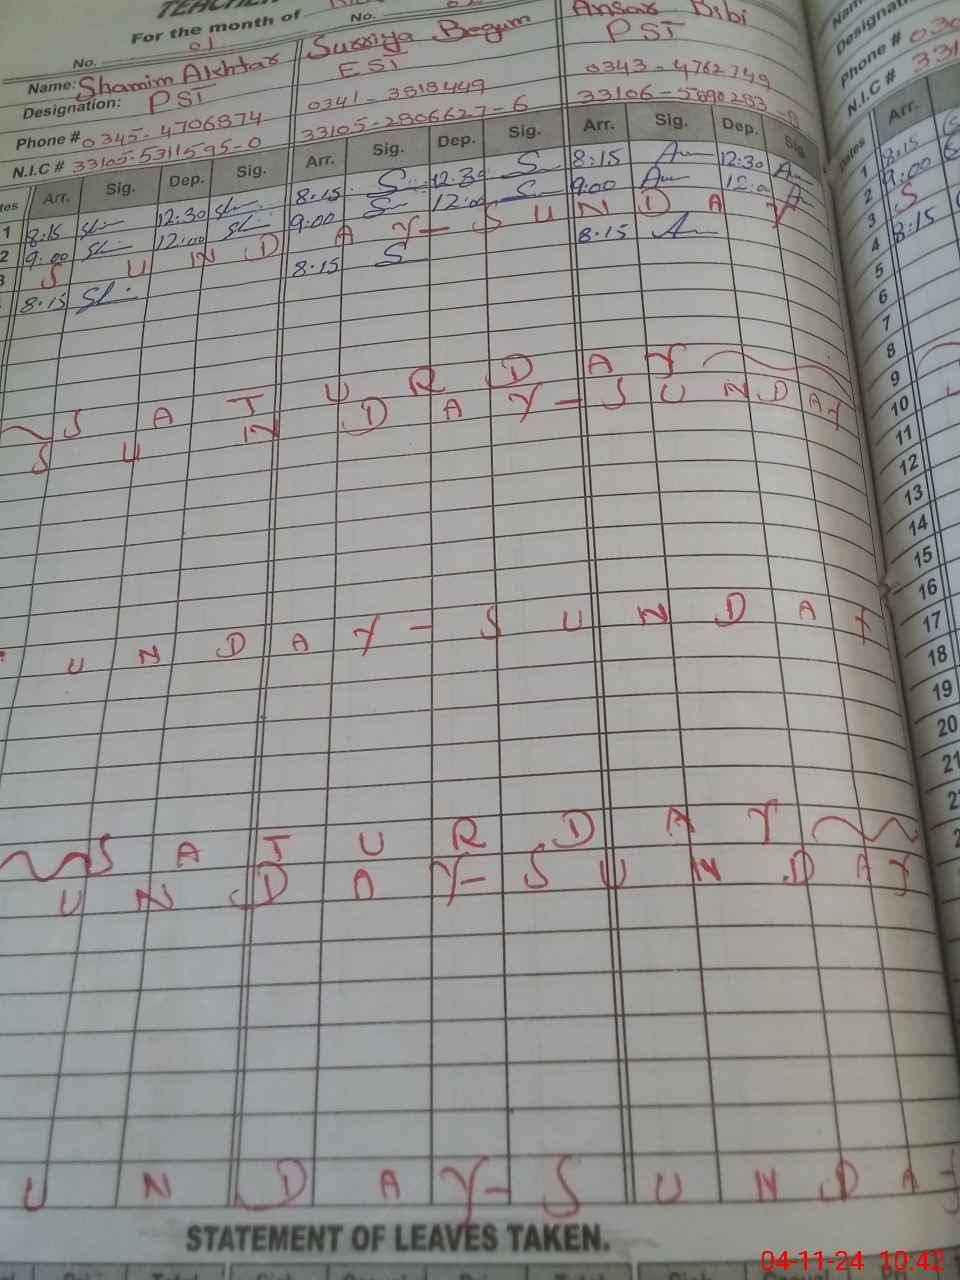 For the month of
No. No.
01
Name: Shamim Akhtar Surriya Begum Ansar Bibi
Designation: PST EST PST
Phone # 0345-4706874 0341-3818449 0343-4762749
N.I.C # 33105-5311595-0 33105-2906627-6
Arr. Sig. Dep. Sig. Arr. Sig. Dep. Sig. Arr. Sig. Dep. Sig.
1 8:15 12:30 8:15 12:30 8:15 12:30
2 9:00 12:00 9:00 12:00 9:00 12:00
3 SUNDAY-SUNDAY
8:15 8:15 8:15
SATURDAY
SUNDAY-SUNDAY
UNDAY-SUNDAY
SATURDAY
UNDAY-SUNDAY
UNDAY-SUNDAY
STATEMENT OF LEAVES TAKEN.
Designation
Phone #
N.I.C #
Arr.
1 8:15
2 9:00
3 S
4 8:15
5
6
7
8
9
10
11
12
13
14
15
16
17
18
19
20
21
04-11-24 10:42